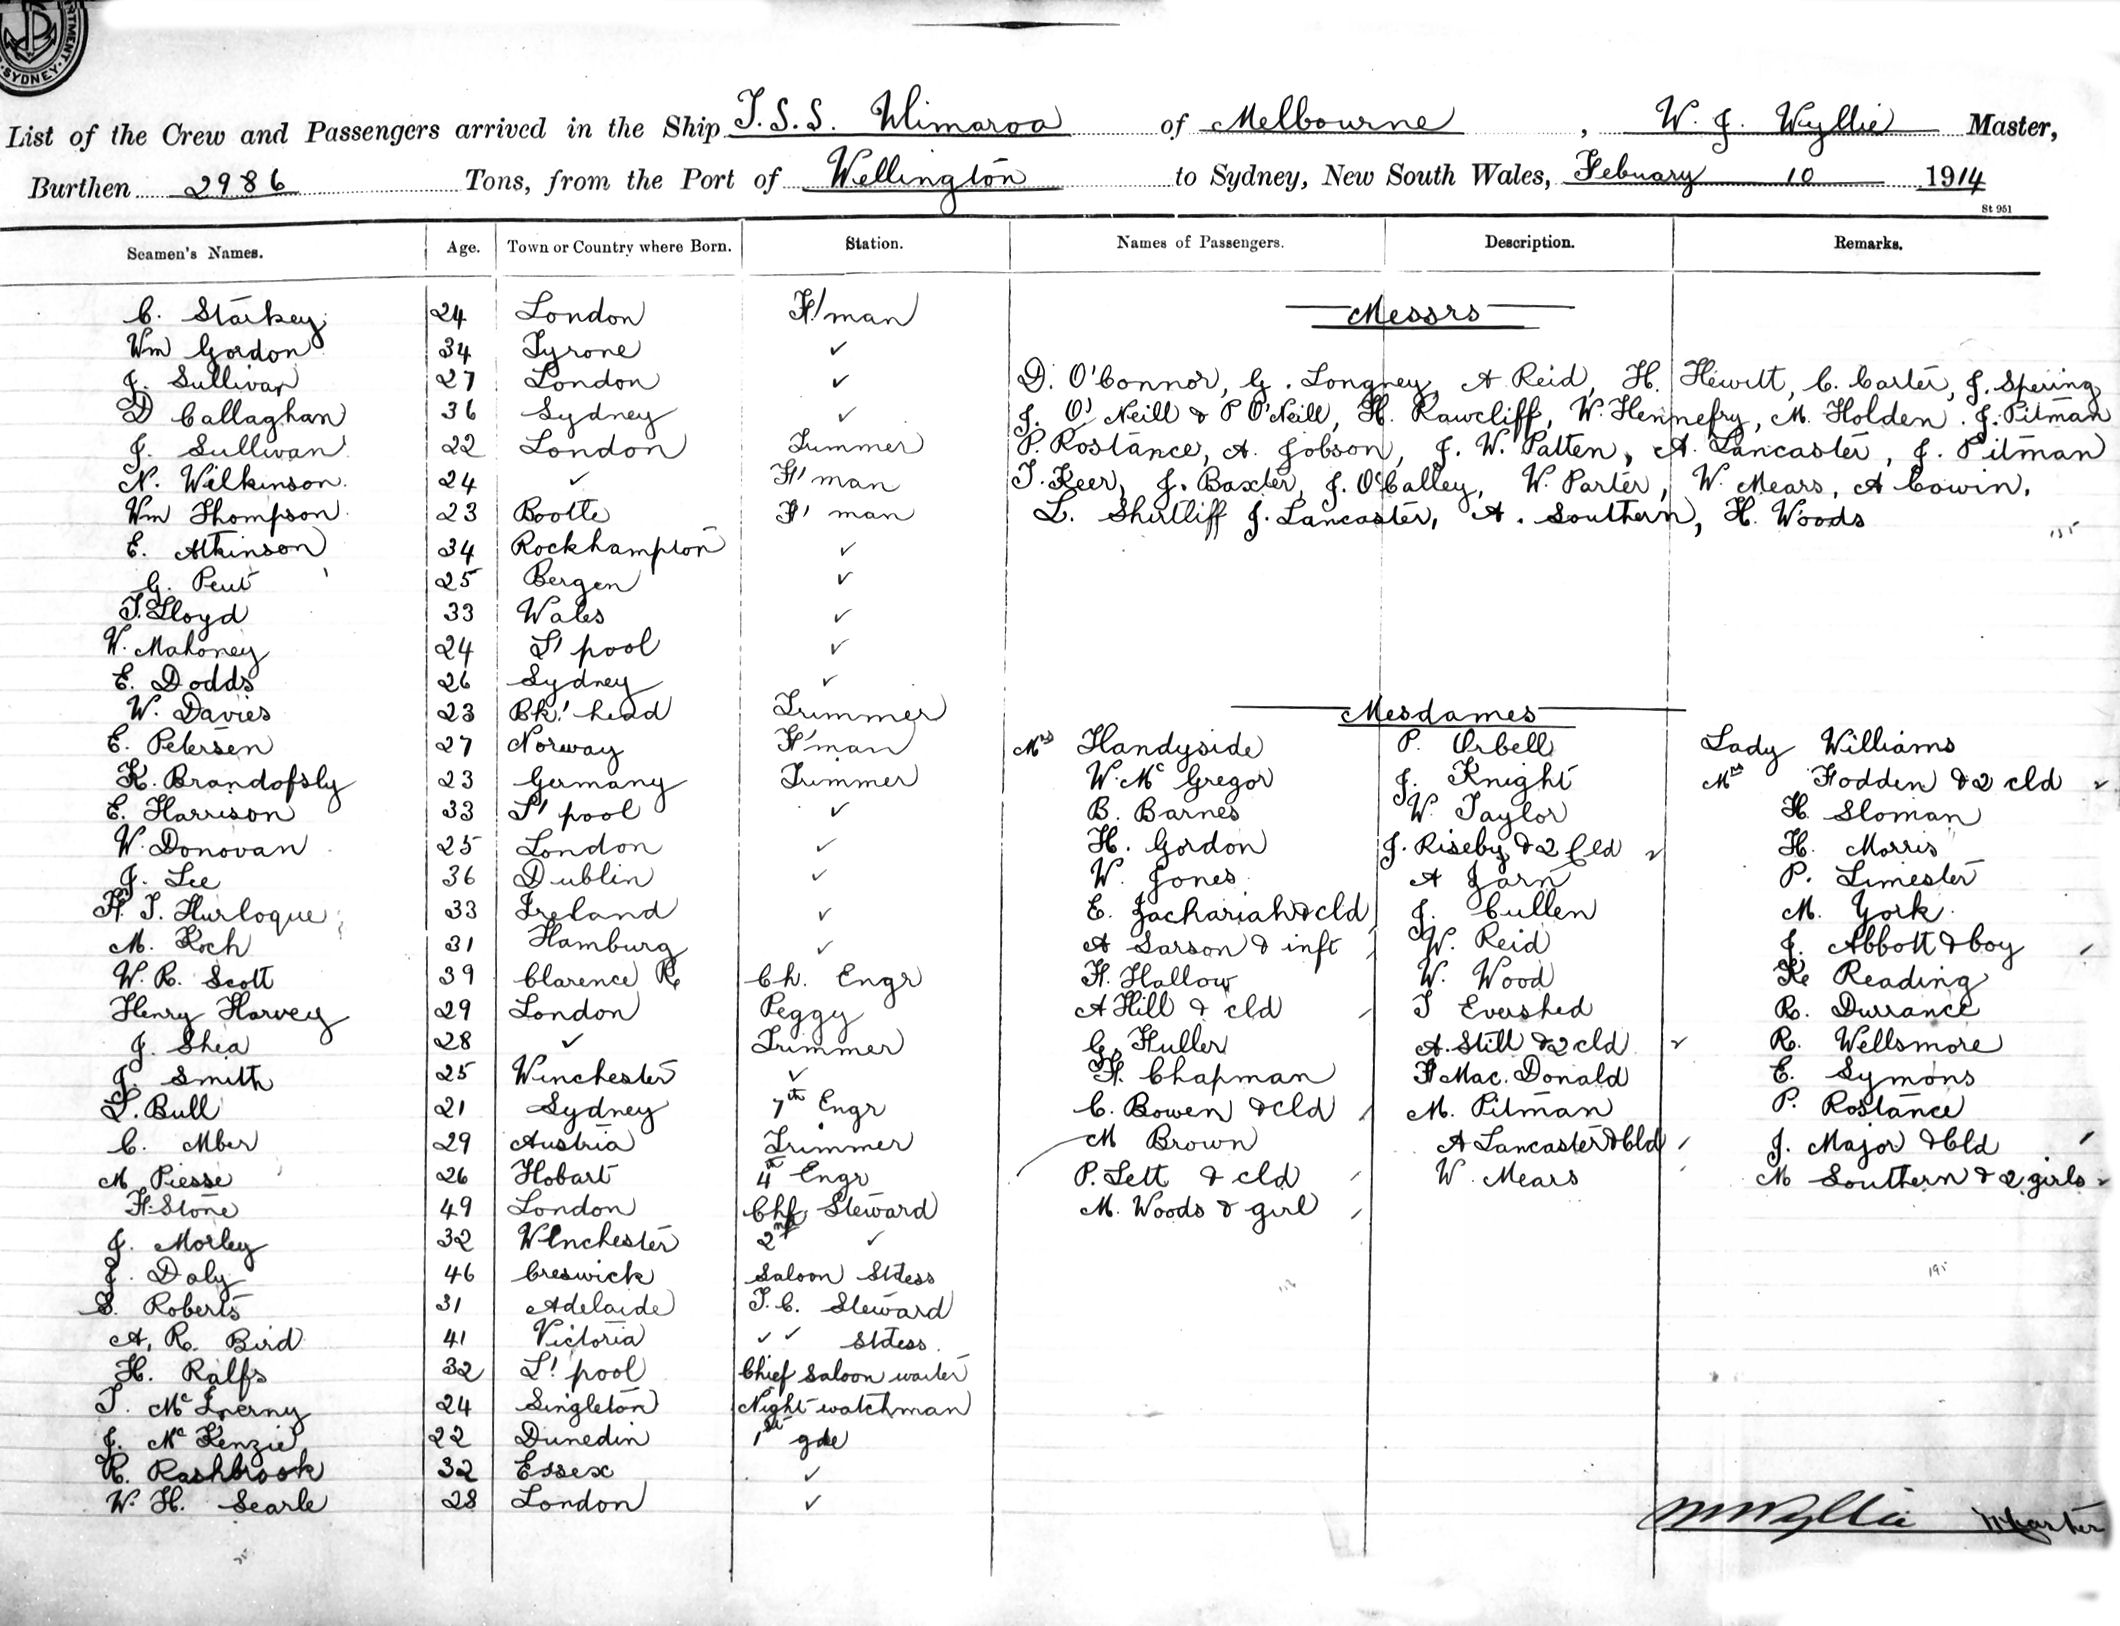 SYDNEY
List of the Crew and Passengers arrived in the Ship T.S.S. Ulimaroa of Melbourne, W. J. Wyllie Master,
Burthen 2986 Tons, from the Port of Wellington to Sydney, New South Wales, Febuary 10 1914
St 951
Seamen's Names. Age. Town or Country where Born. Station. Names of Passengers. Description. Remarks.
C. Starkey 24 London F'man Messrs
Wm Gordon 34 Tyrone ✓
J. Sullivan 27 London ✓ D. O'Connor, G. Longney, A Reid, H. Hewitt, C. Carter, J. Spering
D Callaghan 36 Sydney ✓ J. O'Neill & P O'Neill, H. Rawcliff, W. Hennefry, M. Holden. J. Pitman
J. Sullivan 22 London Trimmer P. Rostance, A. Jobson, J. W. Patten, A. Lancaster, J. Pitman
N. Wilkinson 24 ✓ F'man T. Keer, J. Baxter, J. O'Calley, W. Parter, W. Mears, A Cowin.
Wm Thompson 23 Bootle F'man L. Shirtliff J. Lancaster, A. Southern, H. Woods
E. Atkinson 34 Rockhampton ✓
G. Peut 25 Bergen ✓
T. Lloyd 33 Wales ✓
W. Mahoney 24 L'pool ✓
E. Dodds 26 Sydney ✓
W. Davies 23 Bk'head Trimmer Mesdames
E. Petersen 27 Norway F'man Mrs Handyside P. Orbell Lady Williams
K. Brandofsly 23 Germany Trimmer W. Mc Gregor J. Knight Mrs Fodden & 2 cld ✓
E. Harrison 33 L'pool ✓ B. Barnes W. Taylor H. Sloman
W. Donovan 25 London ✓ H. Gordon J. Riseby & 2 Cld ✓ H. Morris
J. Lee 36 Dublin ✓ W. Jones A Jarn P. Limester
F. T. Hurloque 33 Ireland ✓ E. Zachariah & cld J. Cullen M. York
M. Koch 31 Hamburg ✓ A Sarson & inft W. Reid J. Abbott & boy
W. R. Scott 39 Clarence R. Ch. Engr F. Hallow W. Wood K Reading
Henry Harvey 29 London Peggy A Hill & cld T Evershed R. Durrance
J. Shea 28 ✓ Trimmer G. Fuller A. Still & 2 cld ✓ R. Wellsmore
J. Smith 25 Winchester ✓ F. Chapman F Mac. Donald E. Symons
L. Bull 21 Sydney 7th Engr C. Bowen & cld M. Pitman P. Rostance
C. Mber 29 Austria Trimmer M Brown A Lancaster & Cld J. Major & Cld
M Piesse 26 Hobart 4th Engr P. Lett & cld W. Mears M Southern & 2 girls ✓
F. Stone 49 London Chf Steward M. Woods & girl
J. Morley 32 Winchester 2nd ✓
J. Daly 46 Creswick Saloon Stdess
S. Roberts 31 Adelaide T. C. Steward
A. R. Bird 41 Victoria ✓ ✓ Stdess.
H. Ralfs 32 L'pool Chief Saloon waiter
T. Mc Inerny 24 Singleton Night watchman
J. Mc Kenzie 22 Dunedin 1st gde
R. Rashbrook 32 Essex ✓
W. H. Searle 28 London ✓
W Wyllie Master